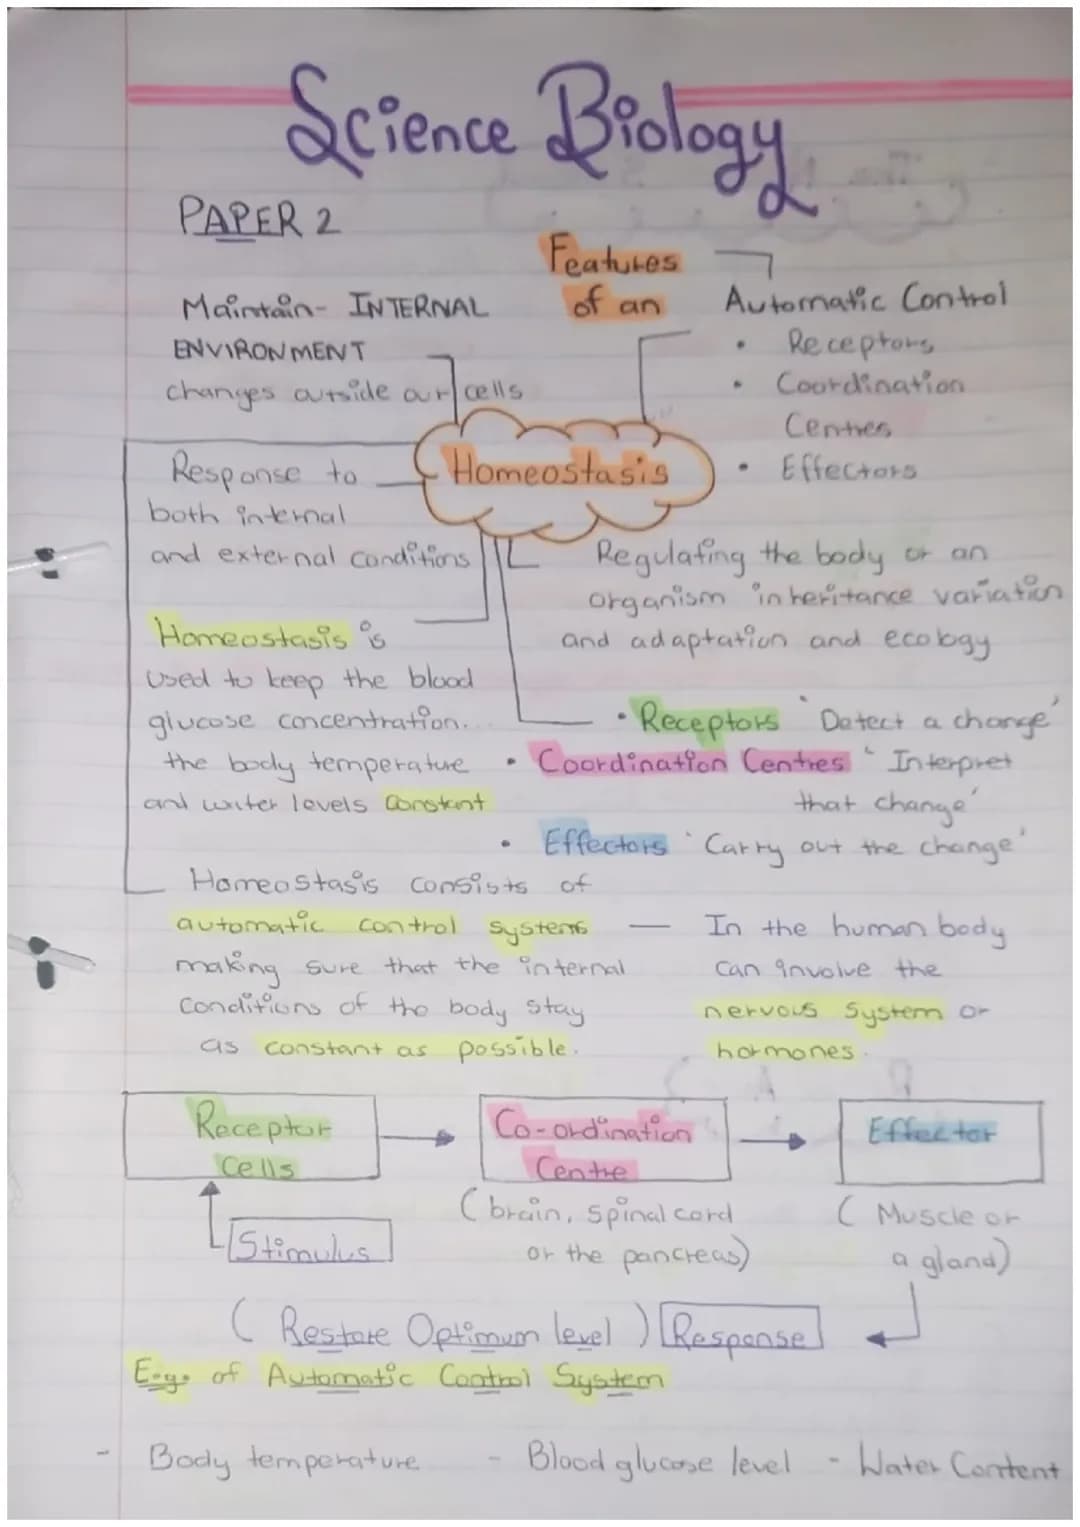 Science Biology
PAPER 2
Features
of an
Automatic Control
• Receptors
• Coordination
Centres
• Effectors
Maintain- INTERNAL
ENVIRONMENT
changes outside our cells
Homeostasis
Response to
both internal
and external conditions
Regulating the body or an
organism inheritance variation
and adaptation and ecology
Homeostasis is
used to keep the blood
glucose concentration...
the body temperature
and water levels constant
• Receptors 'Detect a change'
• Coordination Centres 'Interpret
that change'
• Effectors 'Carry out the change'
Homeostasis consists of
automatic control systems —
making sure that the internal
conditions of the body stay
as constant as possible.
In the human body
can involve the
nervous system or
hormones.
Receptor
Cells
Co-ordination
Centre
Effector
Stimulus
(brain, spinal cord
or the pancreas)
( Muscle or
a gland)
( Restore Optimum level ) Response
E.g. of Automatic Control System
- Body temperature - Blood glucose level - Water Content